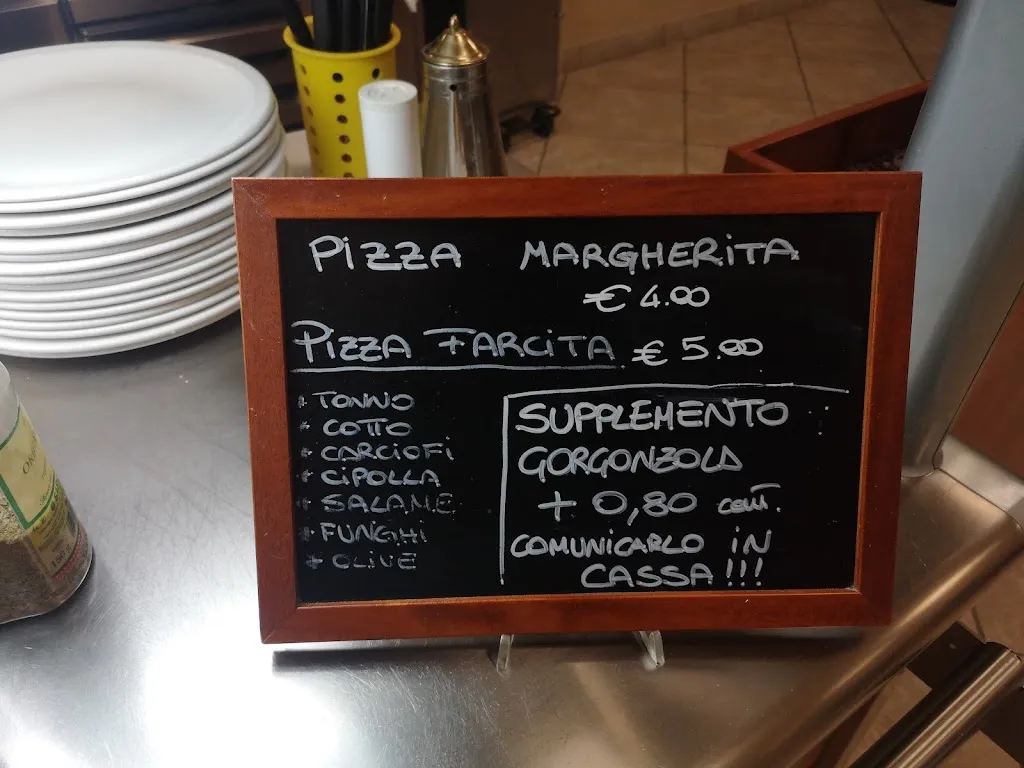 PIZZA MARGHERITA
€ 4.00
PIZZA FARCITA € 5.00
+ TONNO
+ COTTO
+ CARCIOFI
+ CIPOLLA
+ SALAME
+ FUNGHI
+ OLIVE
SUPPLEMENTO
GORGONZOLA
+ 0,80 cent.
COMUNICARLO IN
CASSA!!!